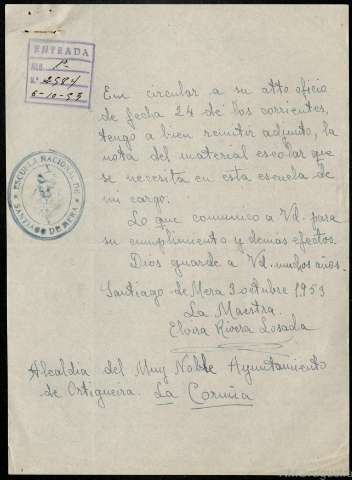 ENTRADA
NEG. 1ª
N.º 2584
6-10-53
Em circular a su attº oficio
de fecha 24 de los corrientes,
tengo a bien remitir adjunto, la
nota del material escolar que
se necesita en esta escuela de
mi cargo.
Lo que comunico a Vd. para
su cumplimiento y demás efectos.
Dios guarde a Vd. muchos años.
Santiago de Mera 2 octubre 1953
La Maestra.
Elvira Rivera Losada
ESCUELA NACIONAL DE
SANTIAGO DE MERA
Alcaldia del Muy Noble Ayuntamiento
de Ortigueira. La Coruña